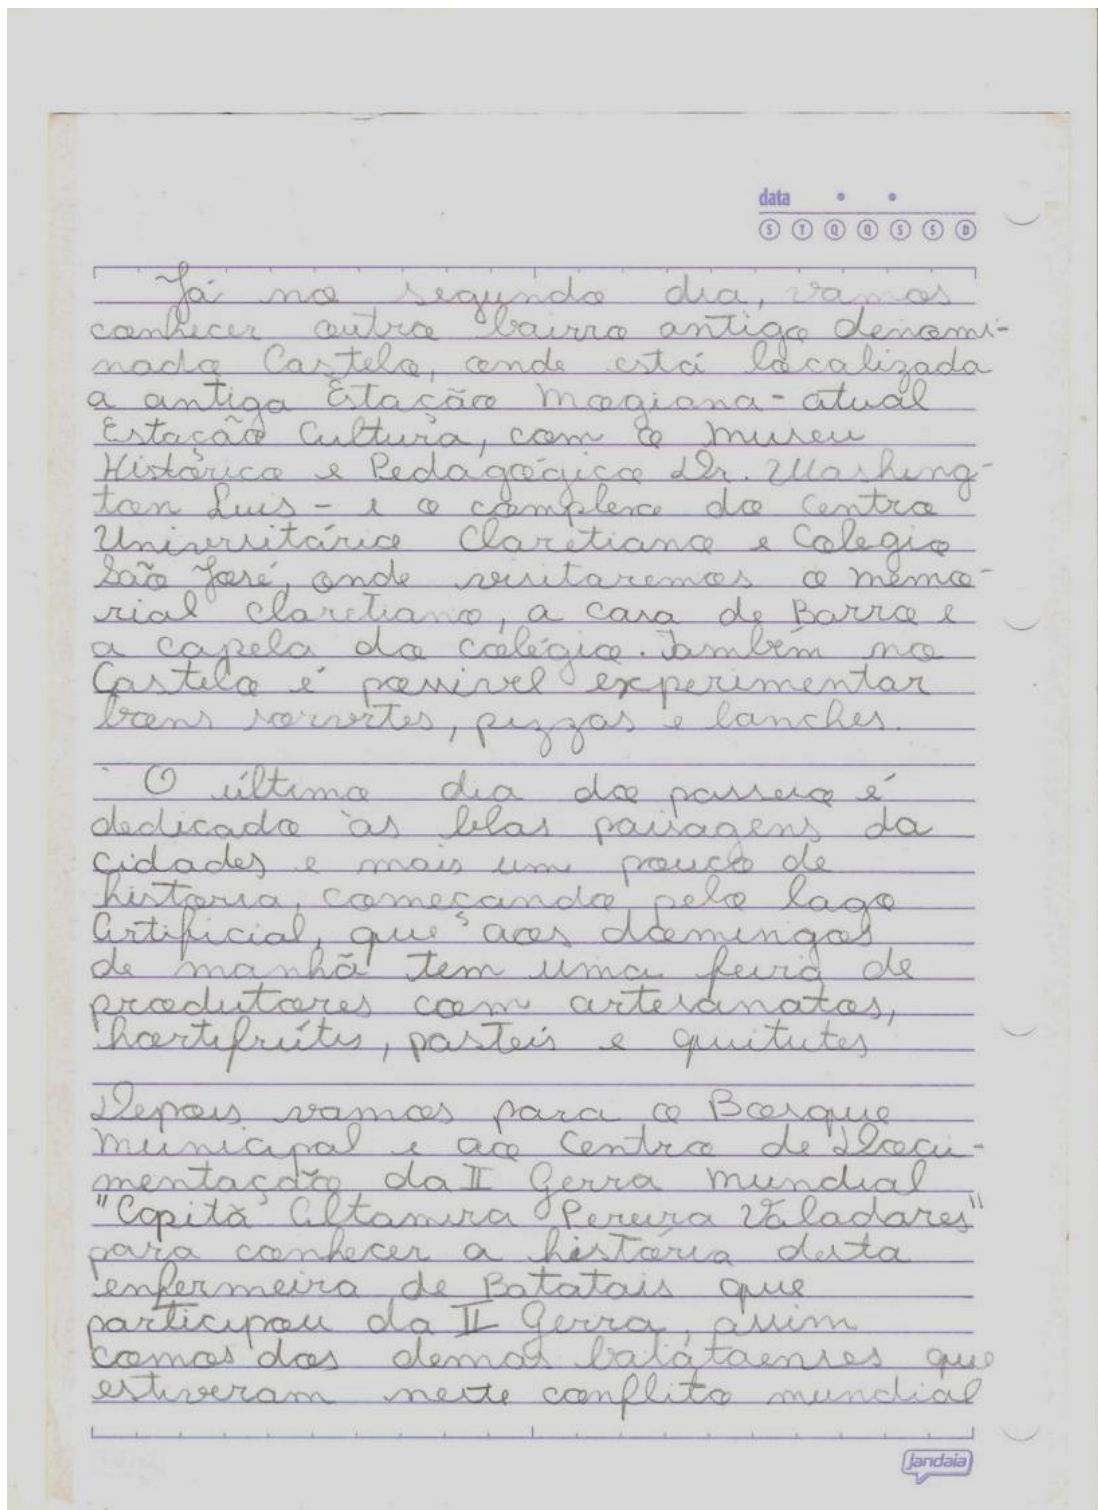 data
S T Q Q S S D
Já no segundo dia, vamos
conhecer outro bairro antigo denomi-
nado Castelo, onde está localizada
a antiga Estação Mogiana - atual
Estação Cultura, com o museu
Histórico e Pedagógico Dr. Washing-
ton Luis - e o complexo do Centro
Universitário Claretiano e Colegio
São José, onde visitaremos o memo-
rial claretiano, a casa de Barro e
a capela do colégio. Também no
Castelo é possivel experimentar
bons sorvetes, pizzas e lanches.
O último dia do passeio é
dedicado às belas paisagens da
cidades e mais um pouco de
historia, começando pelo lago
Artificial, que aos domingos
de manhã tem uma feira de
produtores com artesanatos,
hortifrúitis, pasteis e quitutes
Depois vamos para o Bosque
Municipal e ao Centro de Docu-
mentação da II Gerra Mundial
"Capitã Altamira Pereira Valadares"
para conhecer a história desta
enfermeira de Batatais que
participou da II Gerra, assim
comos dos demas batataenses que
estiveram neste conflito mundial
jandaia